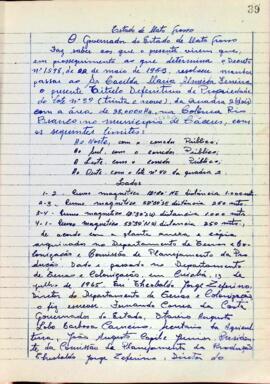 39
Estado de Mato Grosso
O Governador do Estado de Mato Grosso
Faz saber aos que o presente virem que,
em prosseguimento ao que determina o Decreto
nº 1.598, de 22 de maio de 1953, resolveu mandar
passar ao Sr Casilda Maria Almeida Ferreira
o presente Título Definitivo de Propriedade
do lote nº 39 (trinta e nove), da quadra
com a área de na Colônia Rio
Branco, no município de Cáceres, com
os seguintes limites:
Ao Norte, com o corredor Público,
Ao Sul, com o corredor Público,
A Leste, com o corredor Público,
Ao Oeste, com o lote nº 40 da quadra
Lados
1-2 Rumo magnético distância 1.000 mts
2-3 Rumo magnético distância 250 mts
3-4 Rumo magnético distância 1.000 mts
4-1 Rumo magnético distância 250 mts,
de acordo com a planta anexa, cópia
arquivada no Departamento de Terras e Co-
lonização e Comissão de Planejamento da Pro-
dução. Dado e passado no Departamento
de Terras e Colonização, em Cuiabá, 13 de
julho de 1965. Eu Thesbaldo Jorge Zeferino,
Diretor do Departamento de Terras e Colonização
o fiz escrever. Fernando Corrêa da Costa
Governador do Estado,
Lobo Barbosa Carneiro, Secretário da Agricul-
tura. João Augusto Capilé Junior, Presiden-
te da Comissão de Planejamento da Produção
Thesbaldo Jorge Zeferino, Diretor do